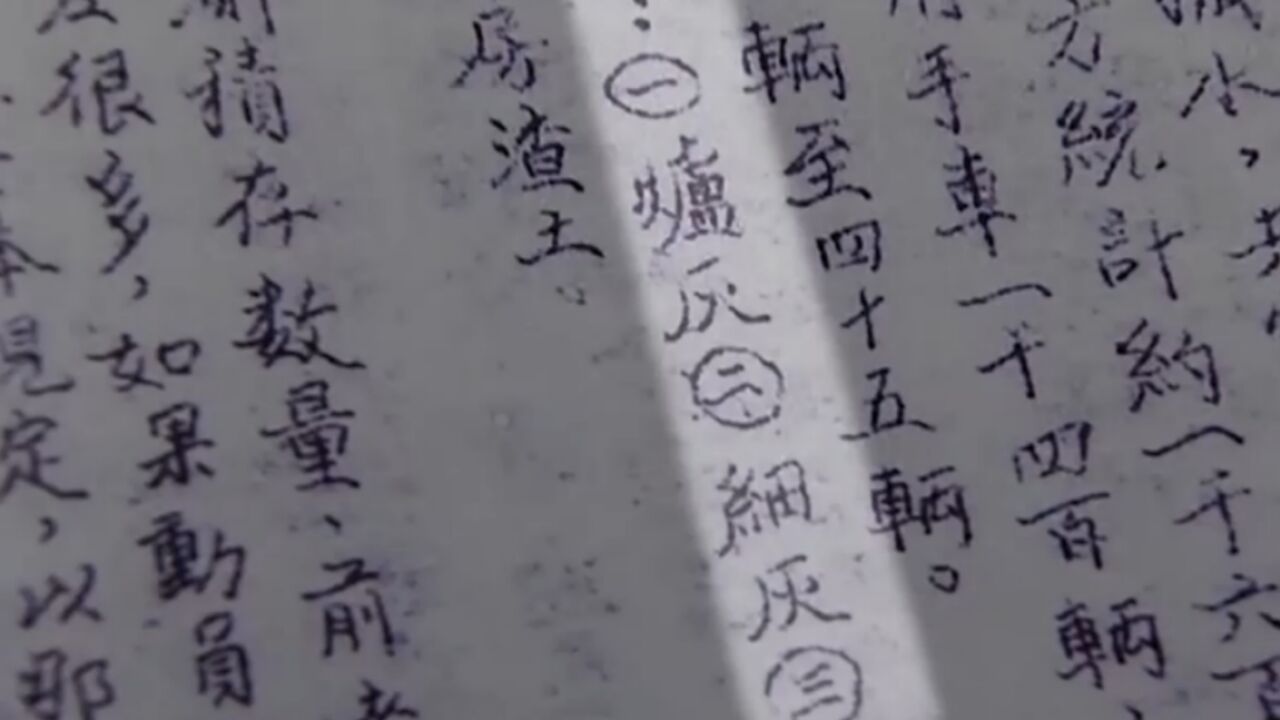 減水，共
方統計約一千六百
手車一千四百輛
輛至四十五輛。
㊀爐灰㊁細灰㊂
房渣土。
積存数量、前者
很多，如果動員
見定，以那